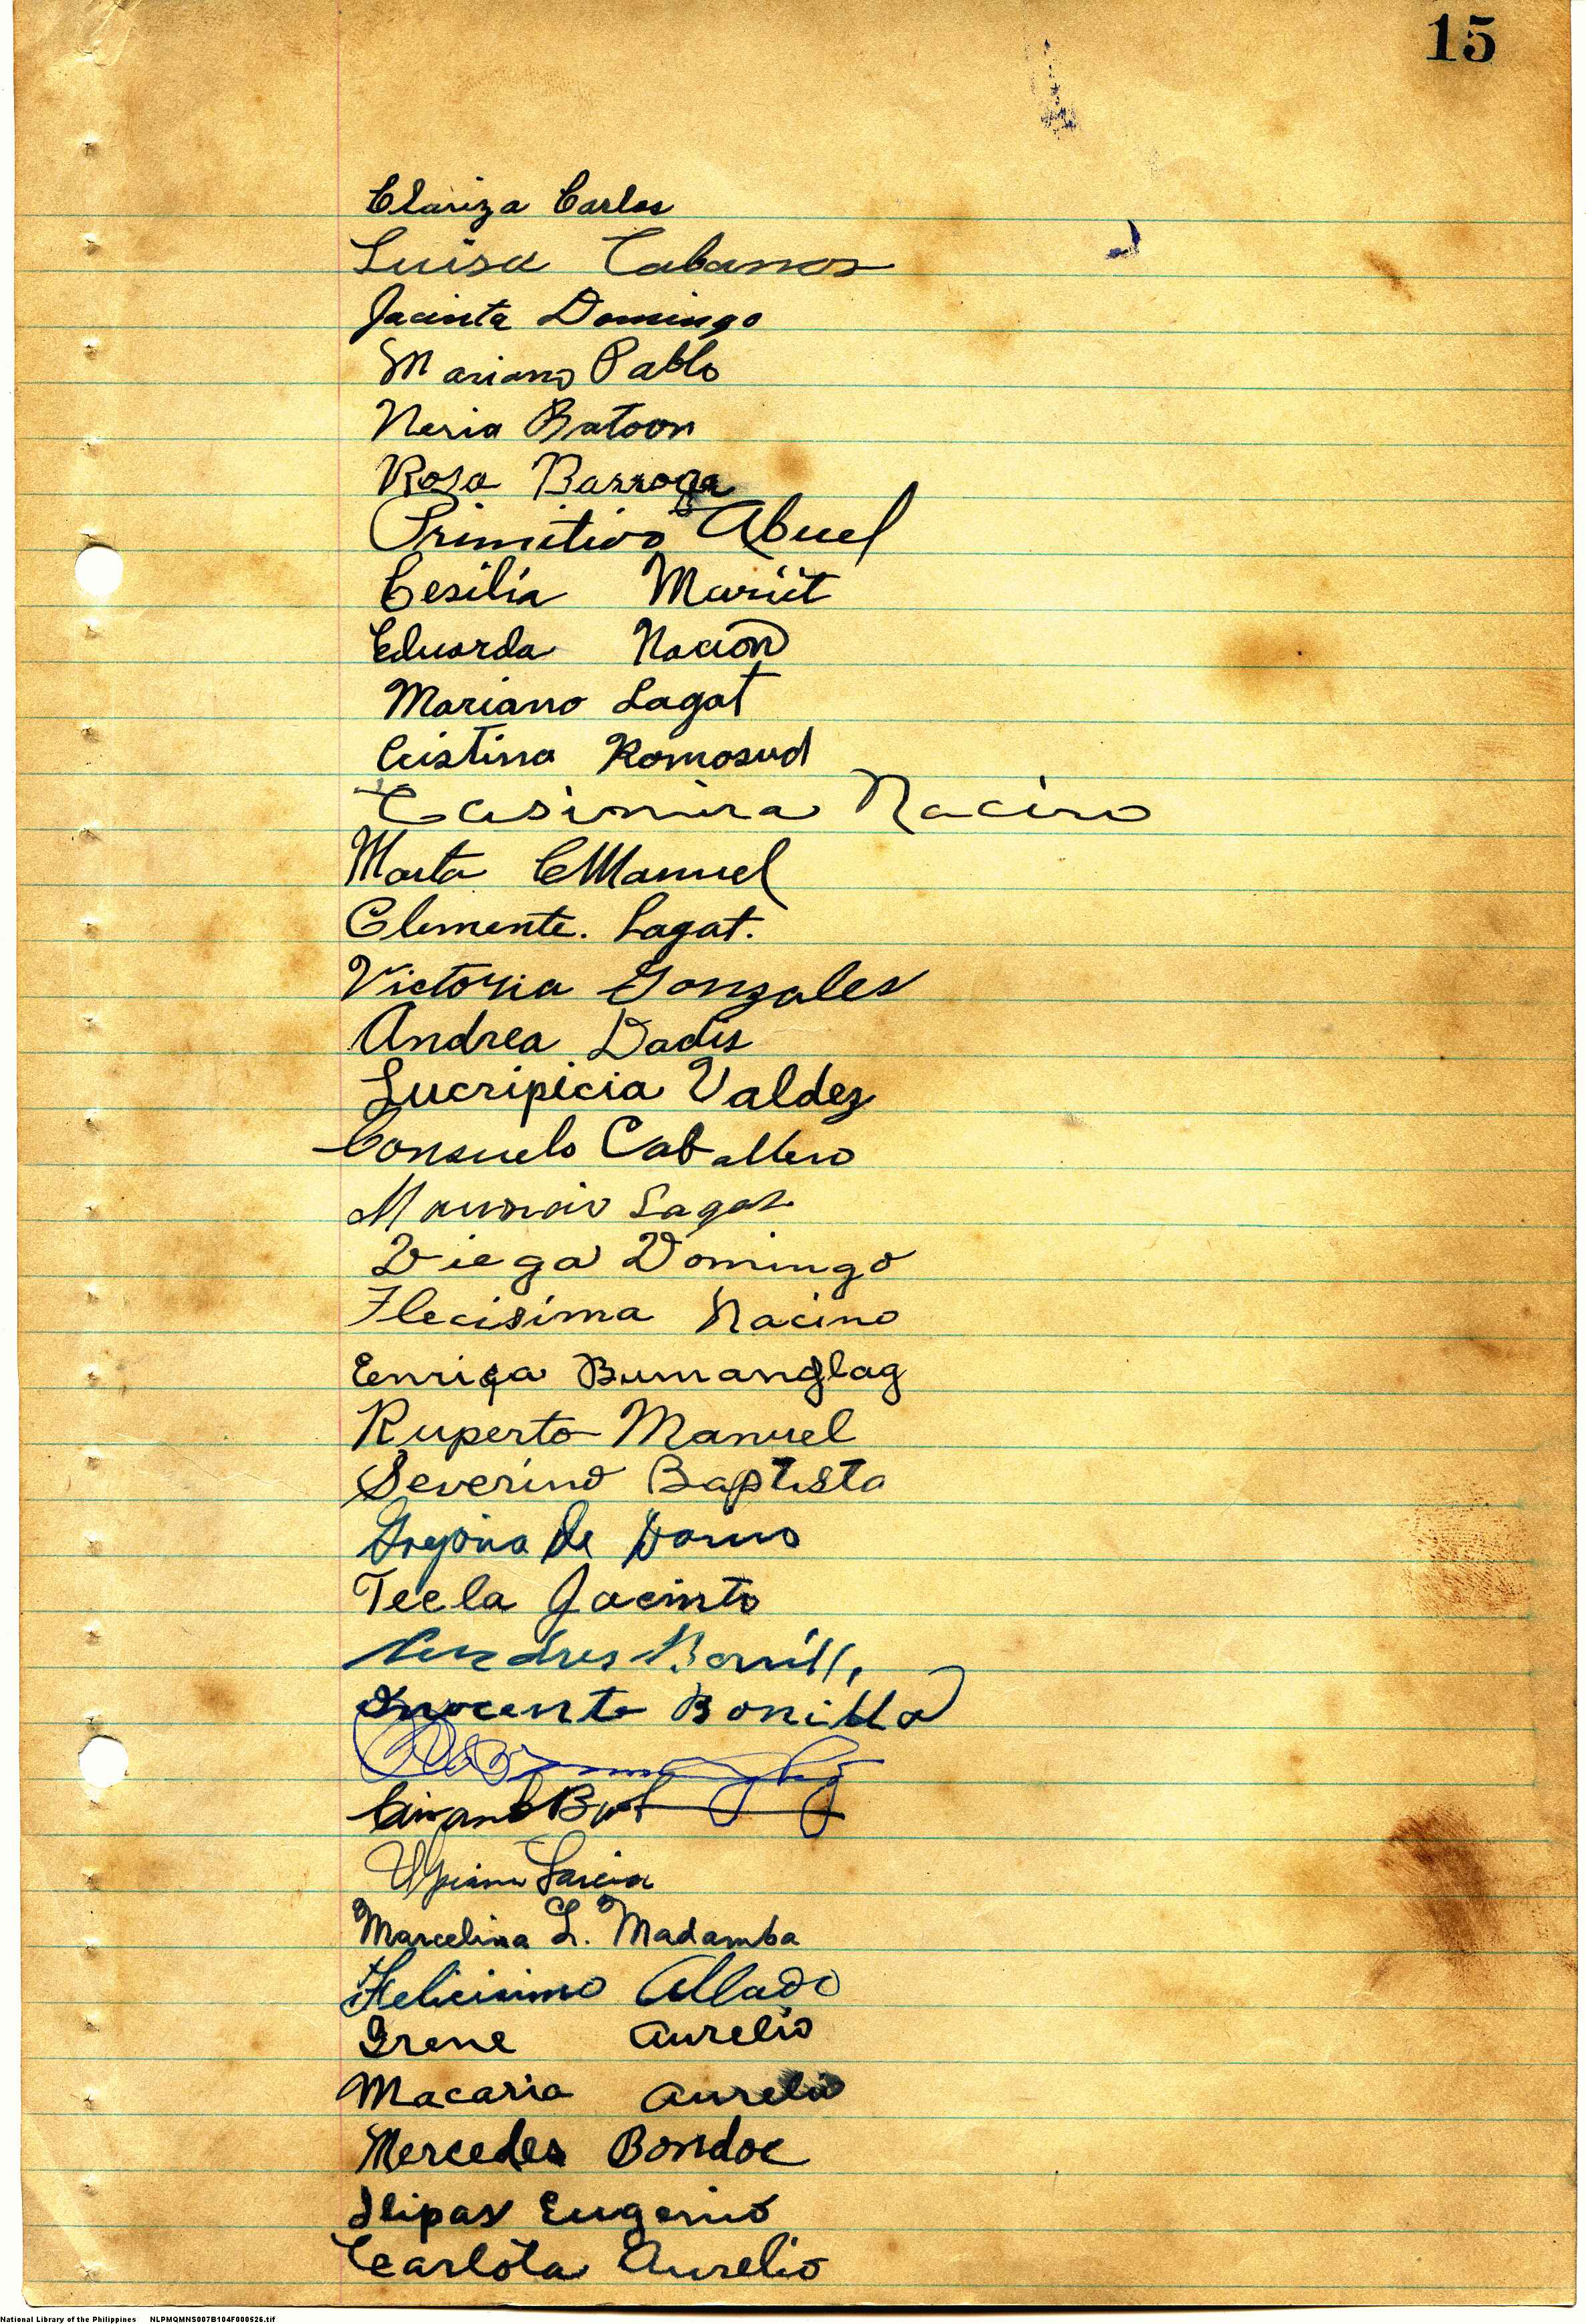 15
Clariza Carlos
Luisa Cabanos
Jacinta Domingo
Mariano Pablo
Neria Batoon
Rosa Barroga
Primitivo Abuel
Cesilia Mariit
Eduarda Nacion
Mariano Lagat
Cristina Romosud
Casimira Nacino
Marta C Manuel
Clemente. Lagat.
Victoria Gonzales
Andrea Dadis
Lucripicia Valdez
Consuelo Caballero
Lagat
Diega Domingo
Flecisima Nacino
Enriqa Bumanglag
Ruperto Manuel
Severino Baptista
de
Tecla Jacinto
Andres Bonill
Inocente Bonilla
Garcia
Marcelina L. Madamba
Felicisimo Allado
Irene Aurelio
Macaria Aurelio
Mercedes Bondoc
Ilipas Eugenio
Carlota Aurelio
National Library of the Philippines NLPMQMNS007B104F000526.tif